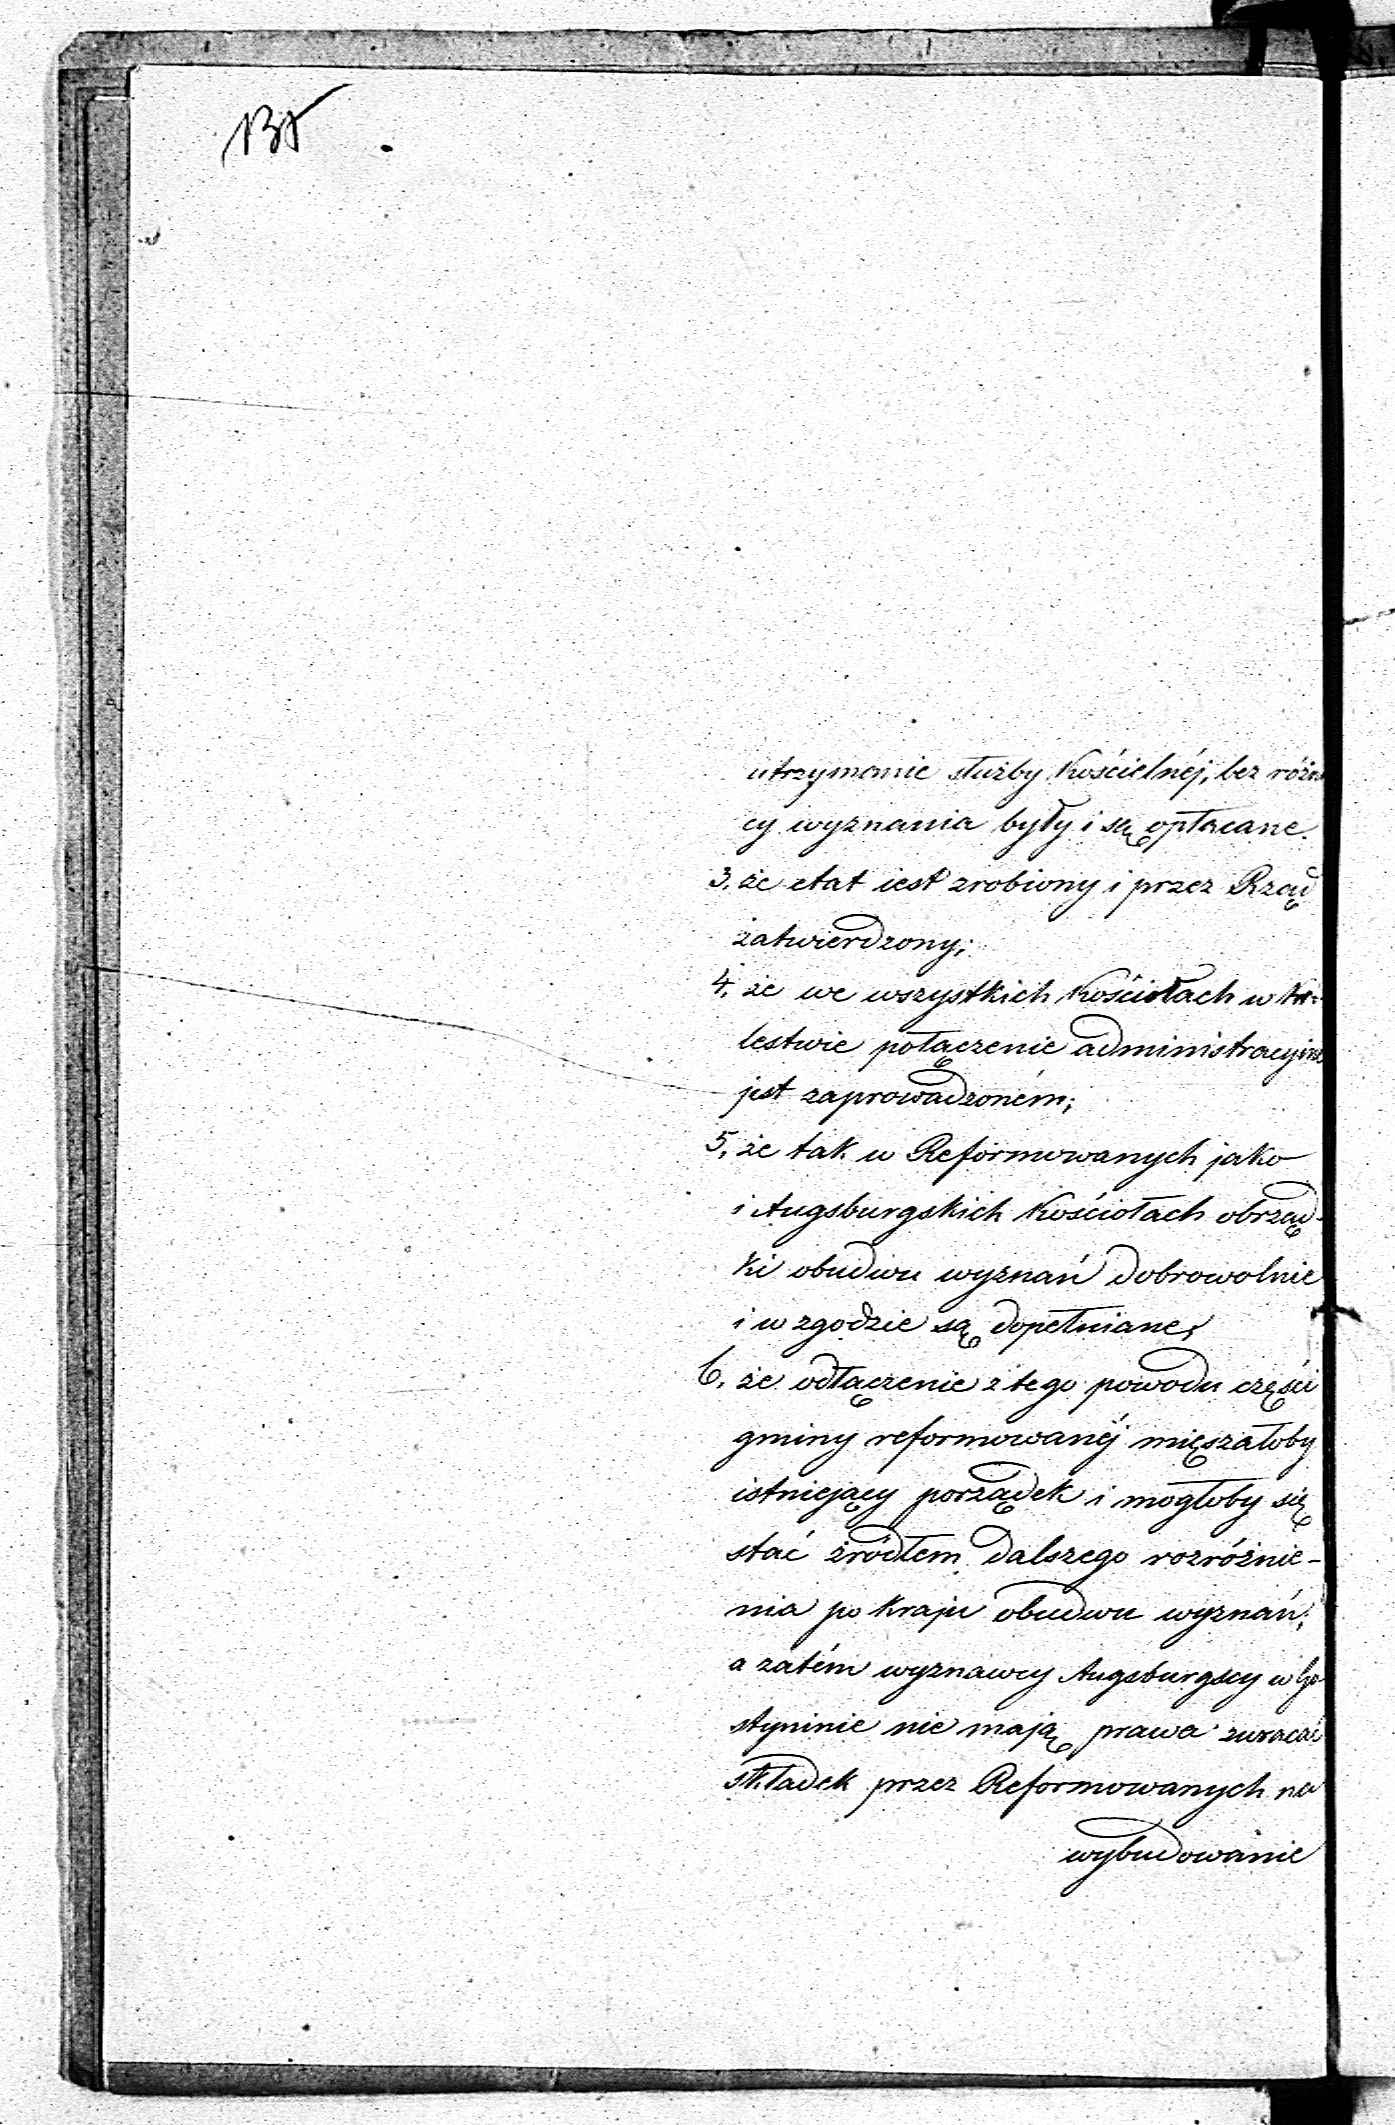 135
utrzymanie służby Kościelnéj, bez różni
cy wyznania były i są opłacane.
3. że etat iest zrobiony i przez Rząd
zatwierdzony;
4. że we wszystkich Kościołach w Kró-
lestwie połączenie administracyjne
jest zaprowadzoném;
5. że tak w Reformowanych jako
i Augsburgskich Kościołach obrząd-
ki obudwu wyznań dobrowolnie
i w zgodzie są dopełniane;
6. że odłączenie z tego powodu części
gminy reformowanéj mięszałoby
istniejący porządek i mogłoby się
stać źródłem dalszego rozróżnie-
nia po kraju obudwu wyznań;
a zatém wyznawcy Augsburgscy w Go-
styninie nie mają prawa zwracać
składek przez Reformowanych na
wybudowanie